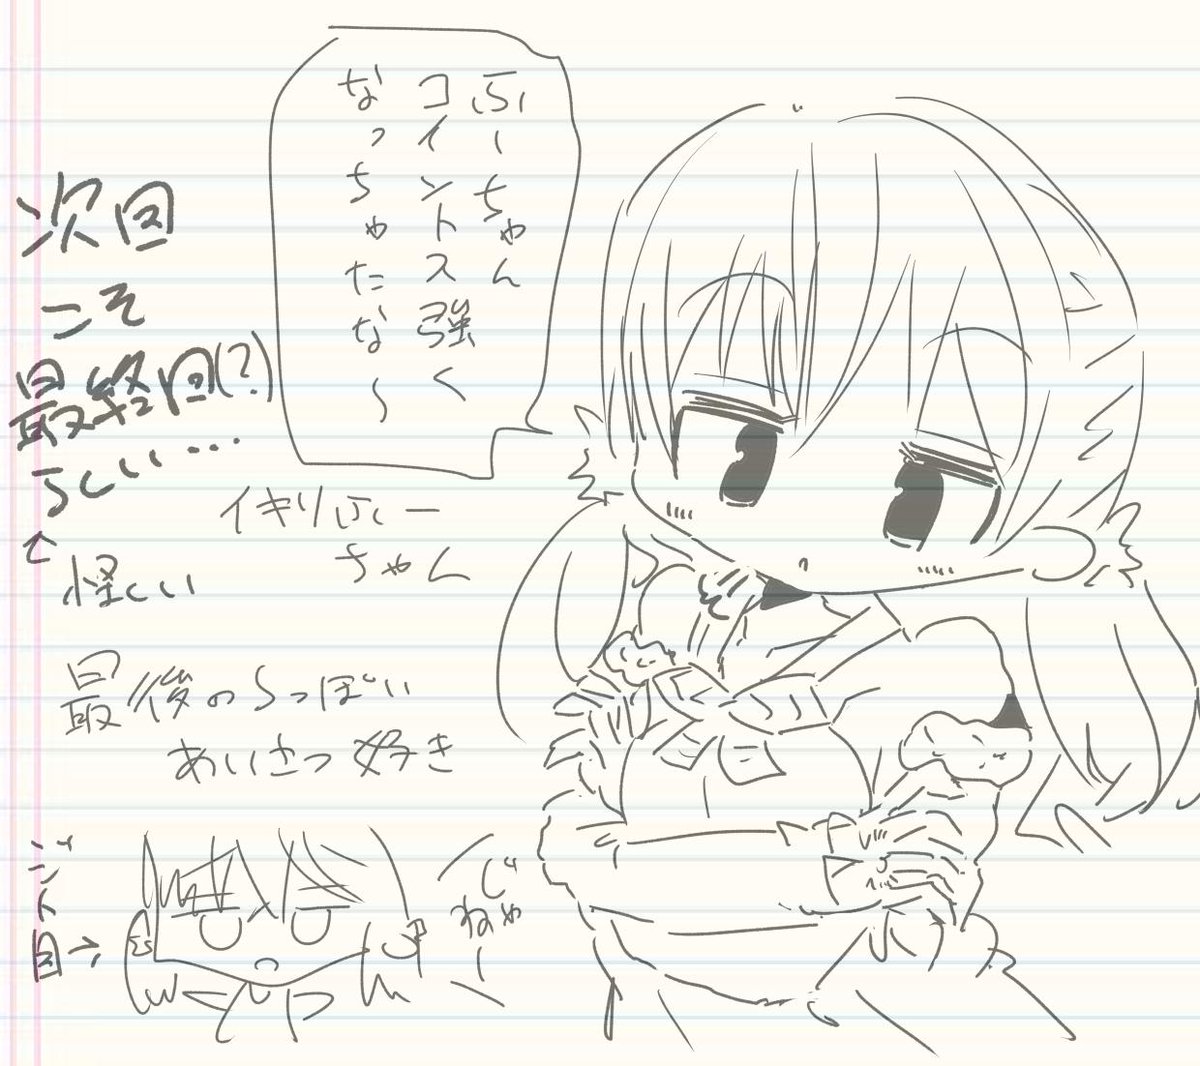 ふーちゃん
コイントス強く
なっちゃたな～
次回
こそ
最終回(?)
らしい…
↑
怪しい
イキりふー
ちゃん
最後のらっぽい
あいさつ好き
ジト目→
じゃ
ねー